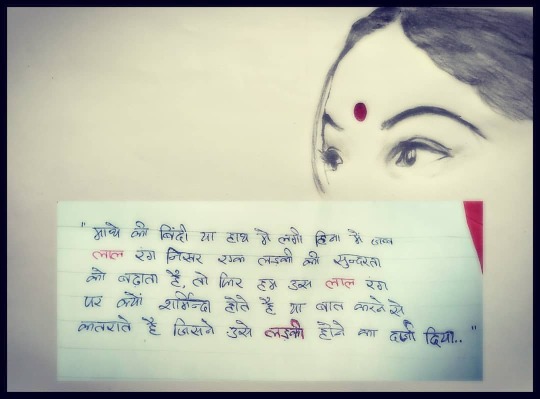 "माथे की बिंदी या हाथ में लगी हिना में जब
लाल रंग निखर एक लड़की की सुन्दरता
को बढ़ाता है, तो फिर हम उस लाल रंग
पर क्यों शर्मिन्दा होते है या बात करने से
कतराते है जिसने उसे लड़की होने का दर्जा दिया.."